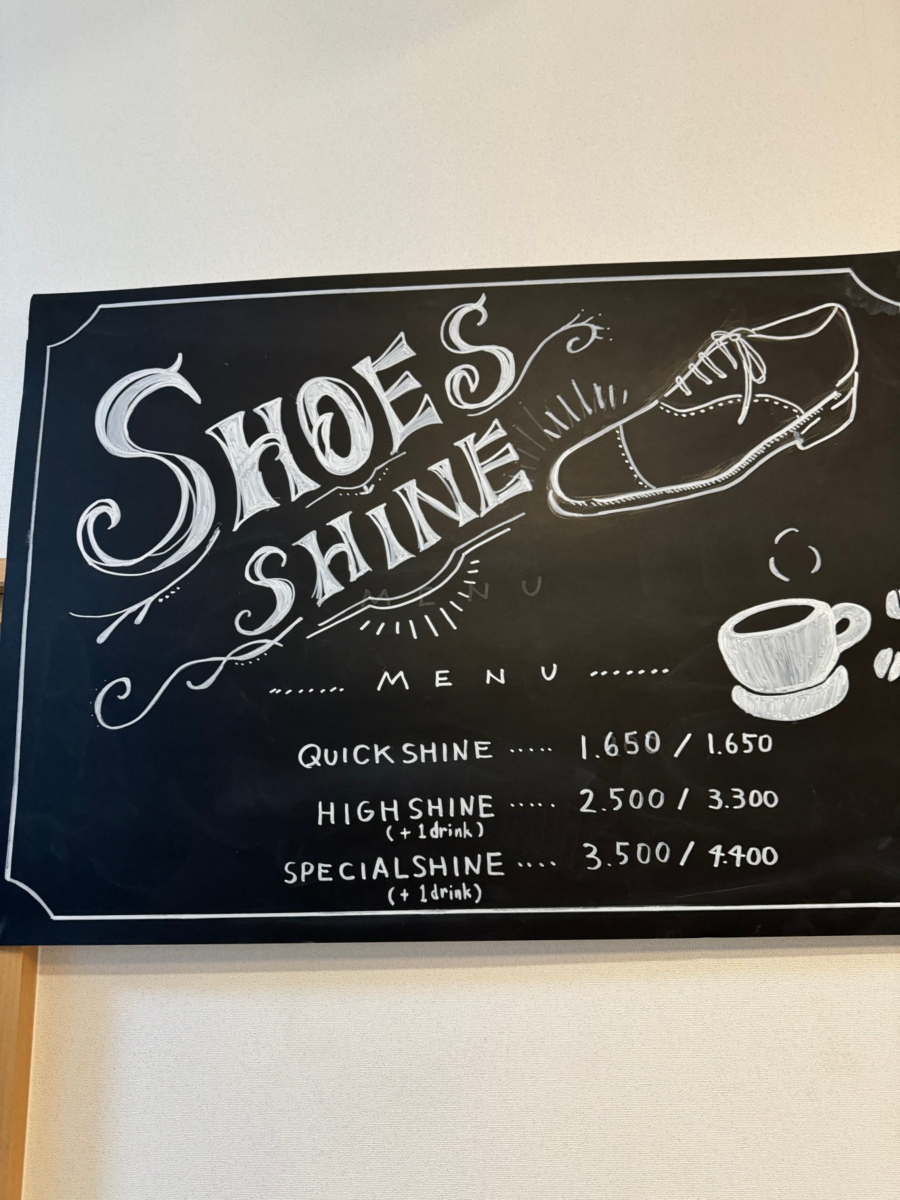 SHOES
SHINE
MENU
....... MENU .......
QUICK SHINE ..... 1.650 / 1.650
HIGH SHINE ..... 2.500 / 3.300
(+1drink)
SPECIAL SHINE .... 3.500 / 4.400
(+1drink)